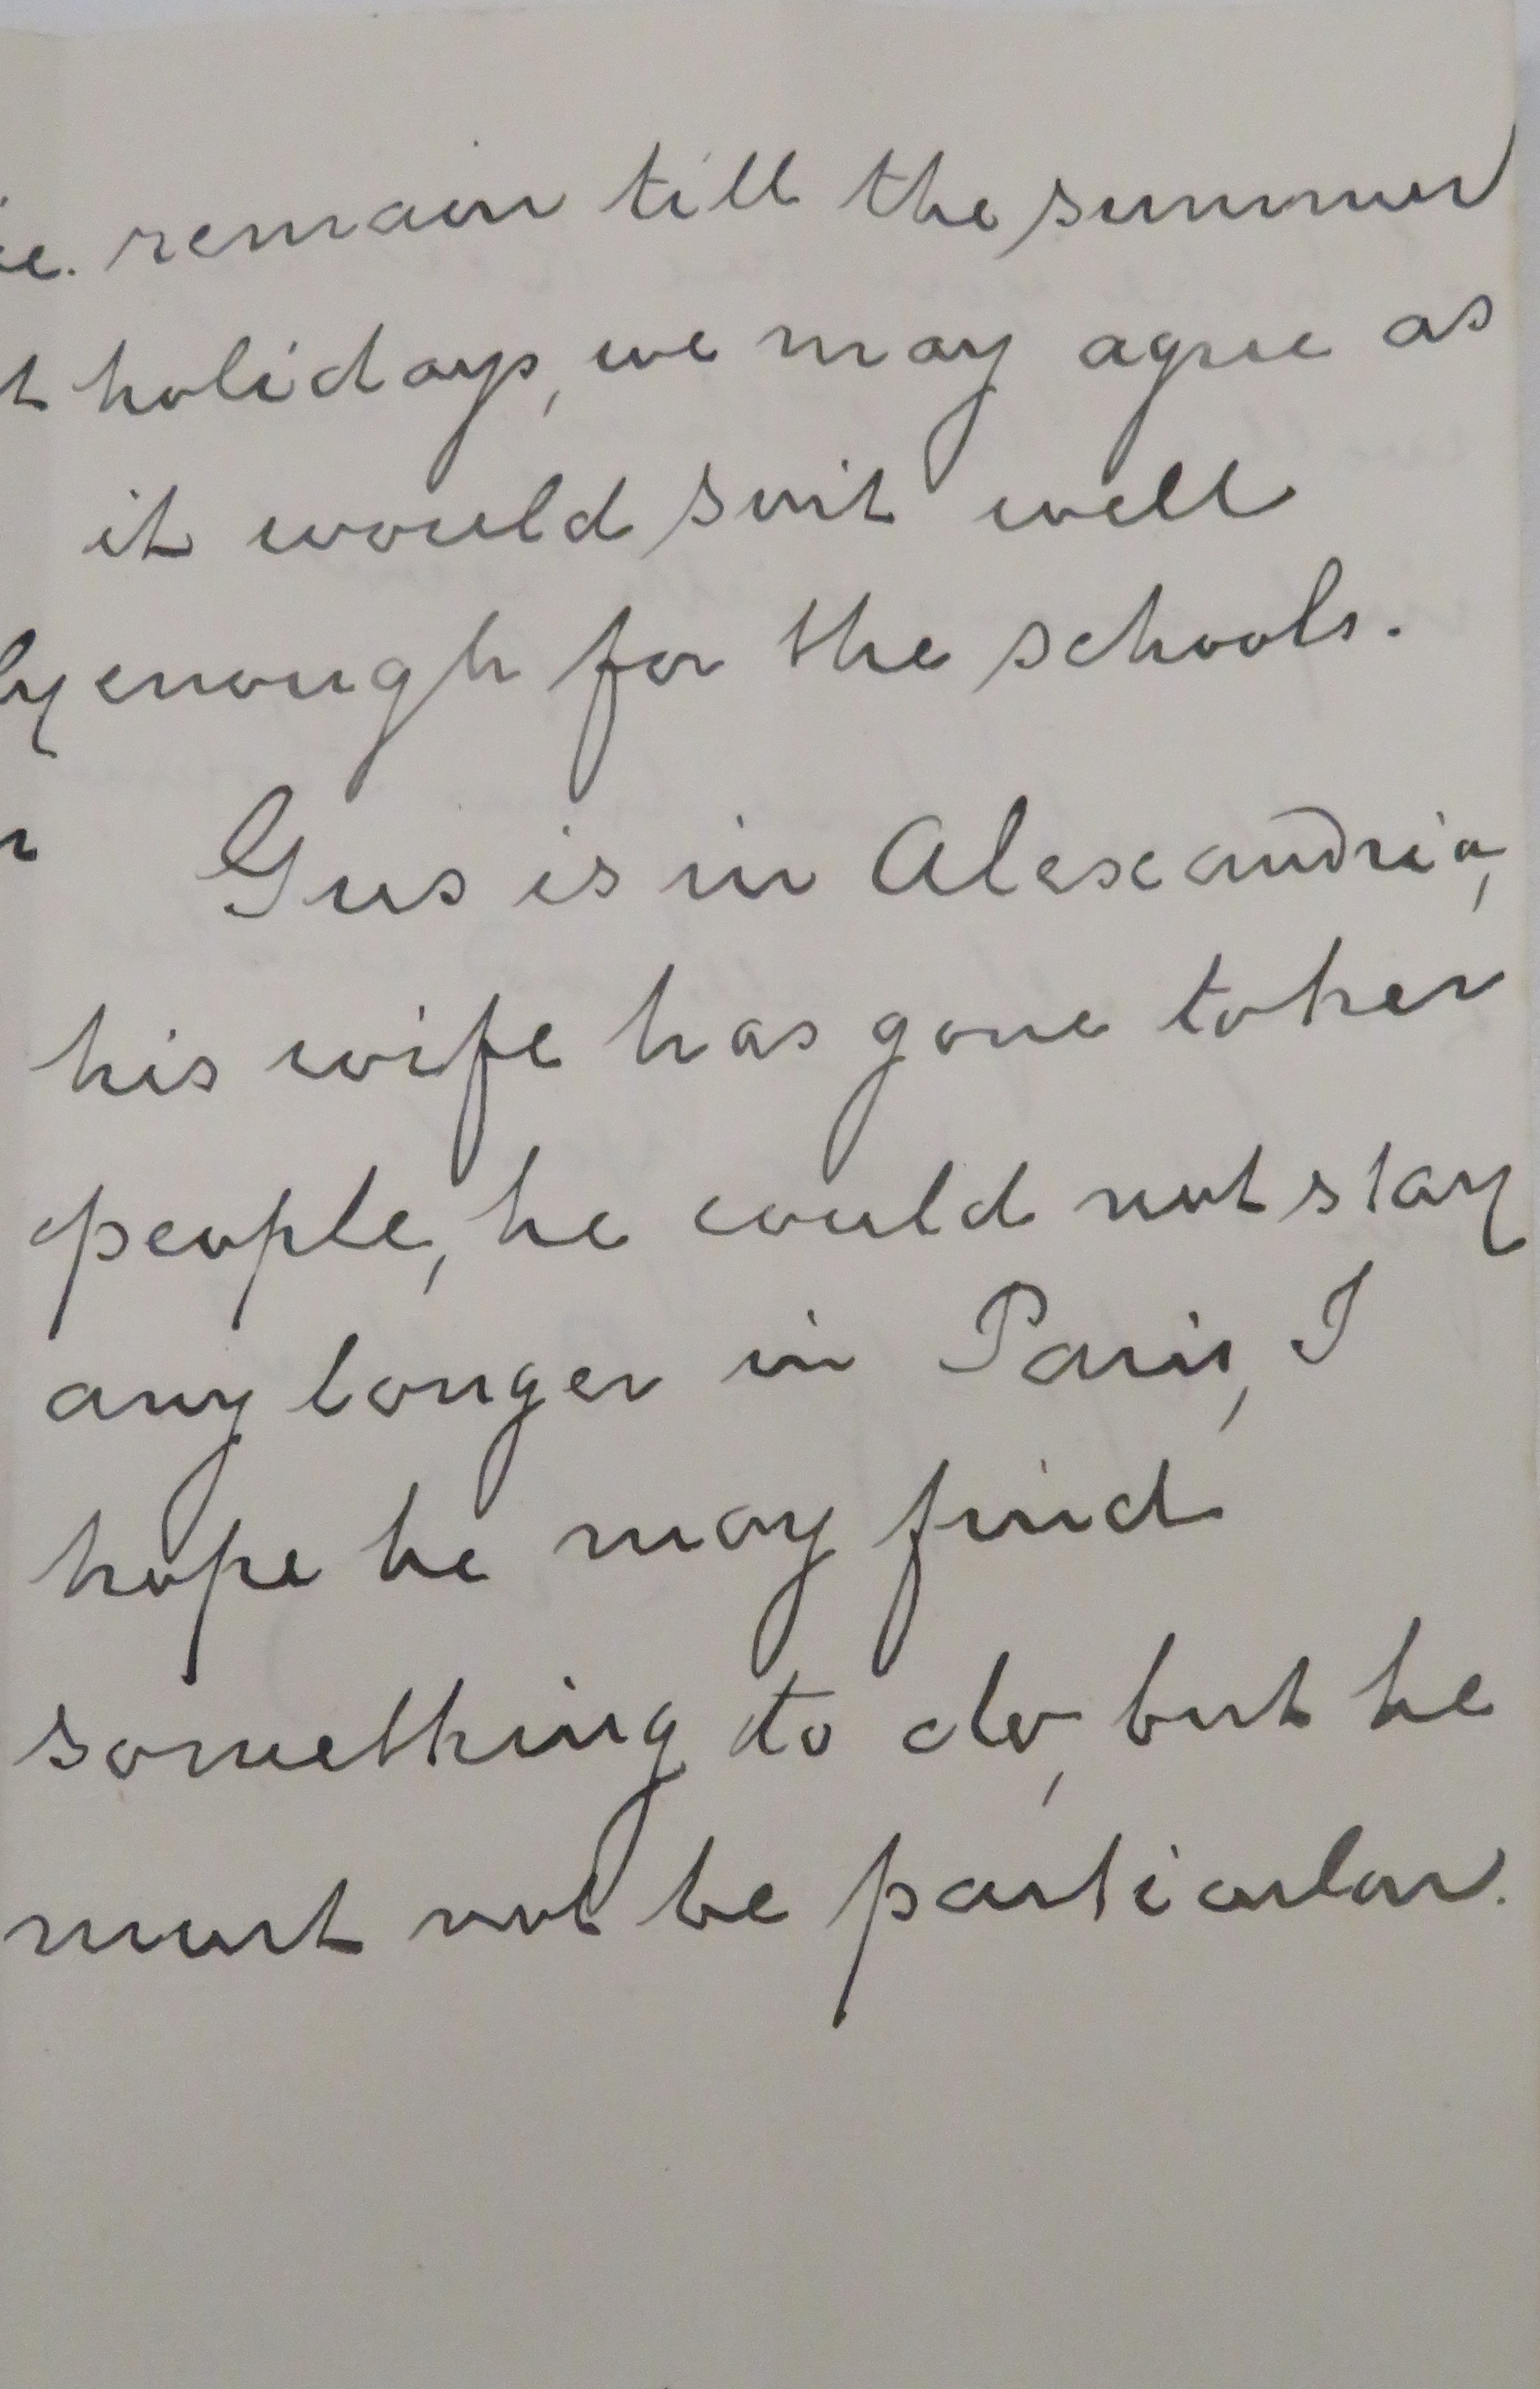 remain till the summer
holidays, we may agree as
it would suit well
enough for the schools.
Gus is in Alexandria,
his wife has gone to her
people, he could not stay
any longer in Paris, I
hope he may find
something to do, but he
must not be particular.